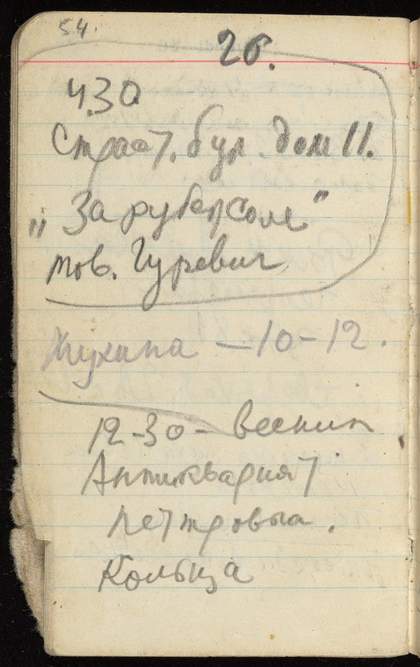 54.
26.
4.30
Страст. бул. дом 11.
„За рубежом“
тов. Гуревич
Жухина — 10-12.
12-30 - Веснин
Антиквариат
Петровка.
Кольца